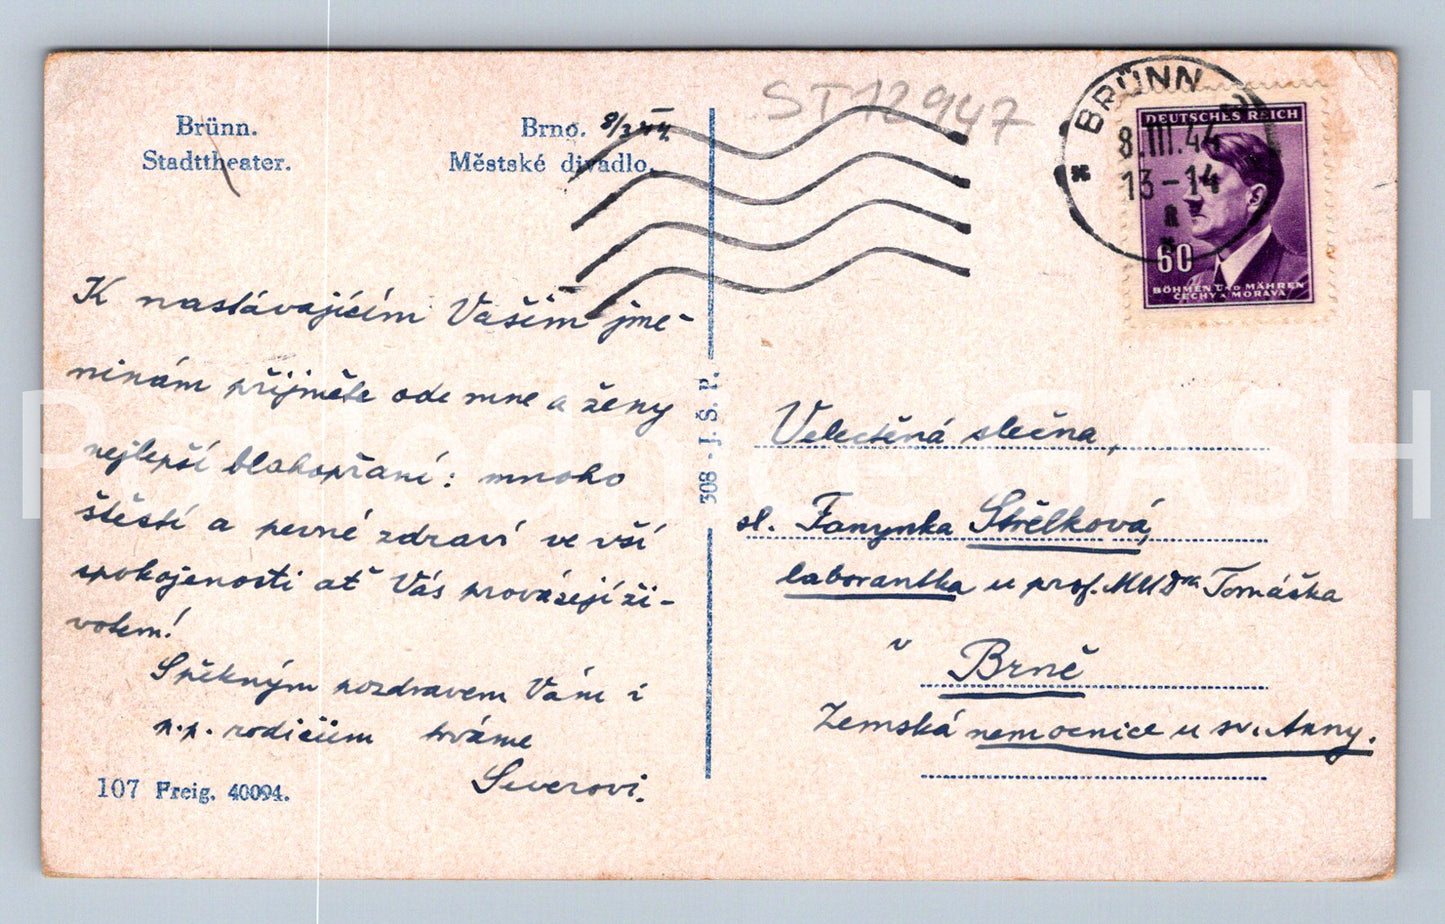 Brünn.
Stadttheater.
Brno. 8/3 44.
Městské divadlo.
ST12947
BRÜNN
8.III.44
13-14
a
DEUTSCHES REICH
60
BÖHMEN UND MÄHREN
ČECHY A MORAVA
K nastávajícím Vašim jme-
ninám přijměte ode mne a ženy
nejlepší blahopřání: mnoho
štěstí a pevné zdraví ve vší
spokojenosti ať Vás provázejí ži-
votem!
S pěkným pozdravem Vám i
p.p. rodičům trváme
Severovi.
107 Freig. 40094.
308 - J. Š. P.
Velectěná slečna,
sl. Fanynka Střelková,
laborantka u prof. MUDra Tomáška
v Brně
Zemská nemocnice u sv. Anny.
Pohlednice SASH